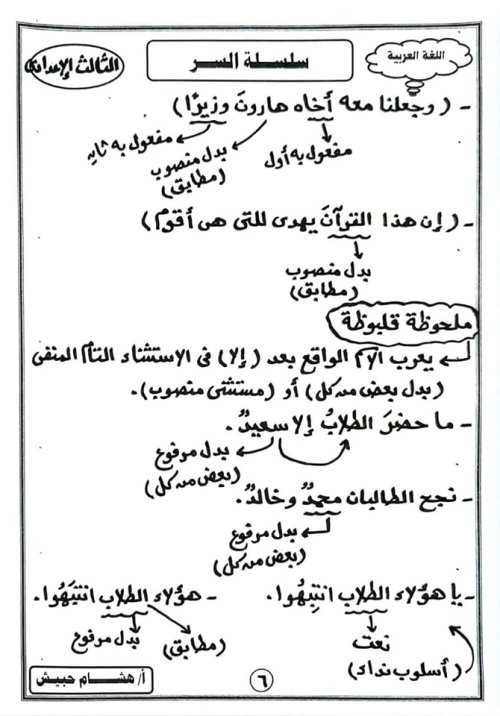 اللغة العربية
سلسلة السر
الثالث الإعدادى
- (وجعلنا معه أخاه هارونَ وزيرًا)
مفعول به أول
بدل منصوب (مطابق)
مفعول به ثانٍ
- (إن هذا القرآنَ يهدى للتى هى أقومُ)
بدل منصوب
(مطابق)
ملحوظة قلبوظة
يعرب الاسم الواقع بعد (إلا) فى الاستثناء التام المنفى
(بدل بعض من كل) أو (مستثنى منصوب).
- ما حضرَ الطلابُ إلا سعيدٌ.
بدل مرفوع
(بعض من كل)
- نجح الطالبان محمدٌ وخالدٌ.
بدل مرفوع
(بعض من كل)
- يا هؤلاء الطلاب انتبِهُوا.
نعت
(أسلوب نداء)
- هؤلاء الطلاب انتبَهُوا.
بدل مرفوع
(مطابق)
أ/ هشام حبيش
٦